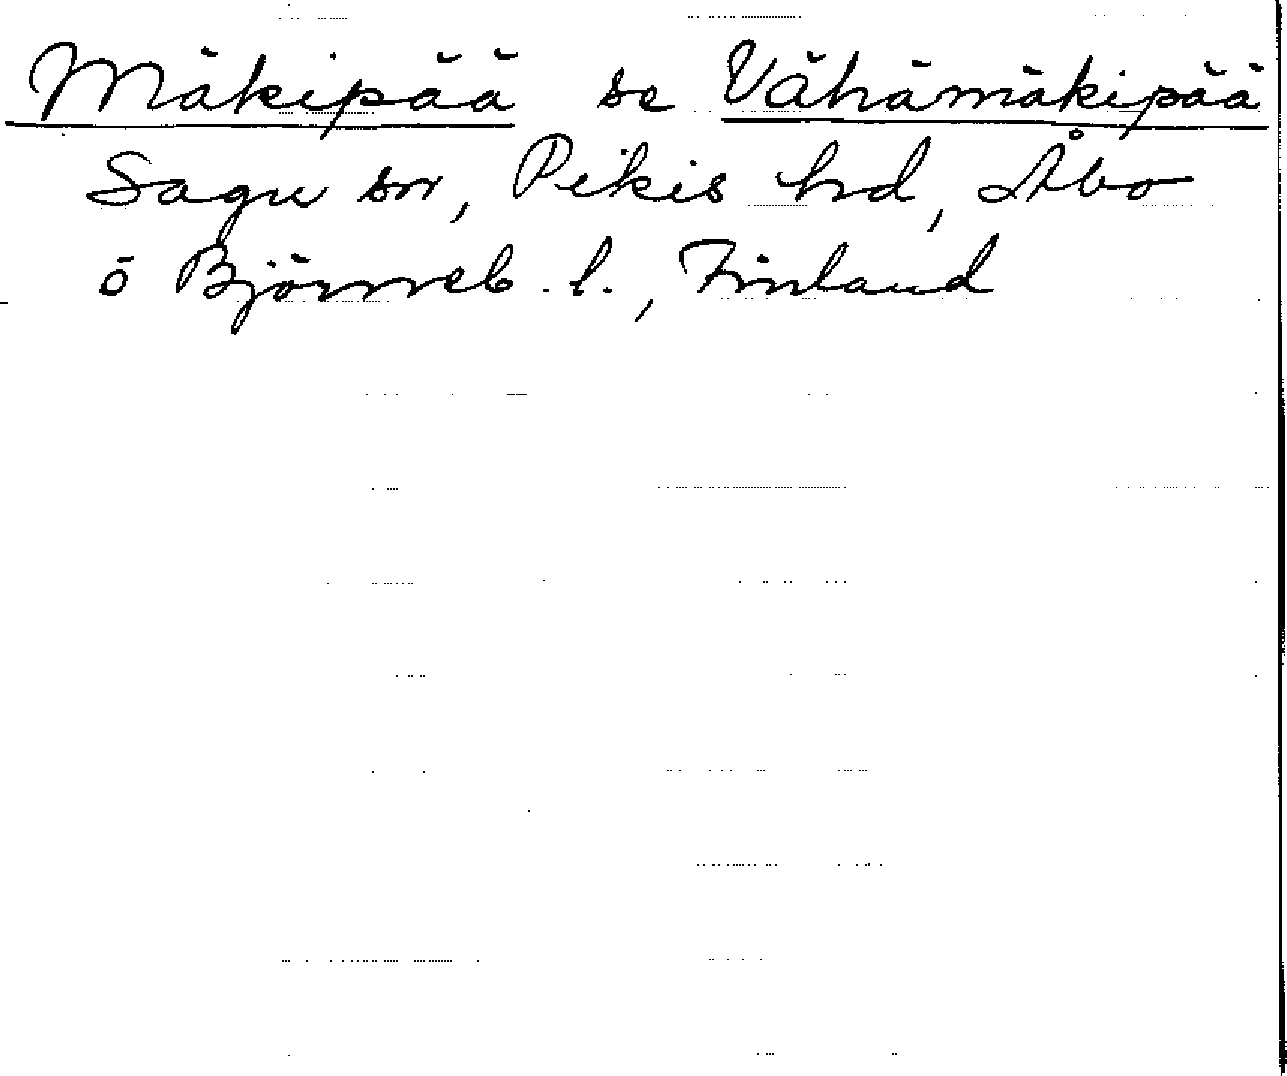 Mäkipää se Vähämäkipää
Sagu sn, Pikis hd, Åbo
o Björneb. l., Finland